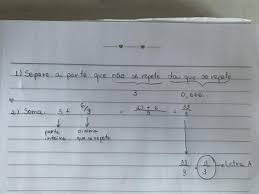 1) Separe a parte que não se repete da que se repete
3 0,666...
2) Soma 3 + 6/9 = 27 + 6 / 9 = 33 / 9
parte inteira dízima que se repete
33 / 9 = 11 / 3 → Letra A